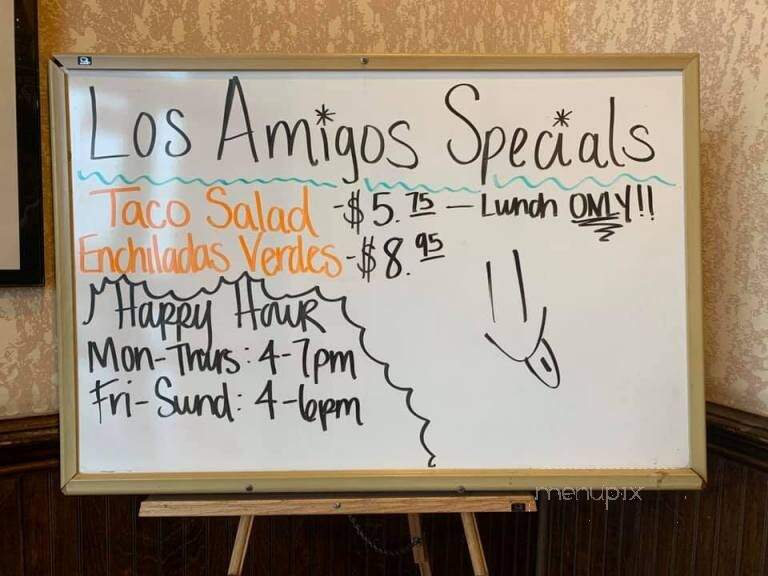 Los Amigos Specials
Taco Salad -$5.75 - Lunch ONLY!!
Enchiladas Verdes -$8.95
Happy Hour
Mon-Thurs: 4-7pm
Fri-Sund: 4-6pm
menupix